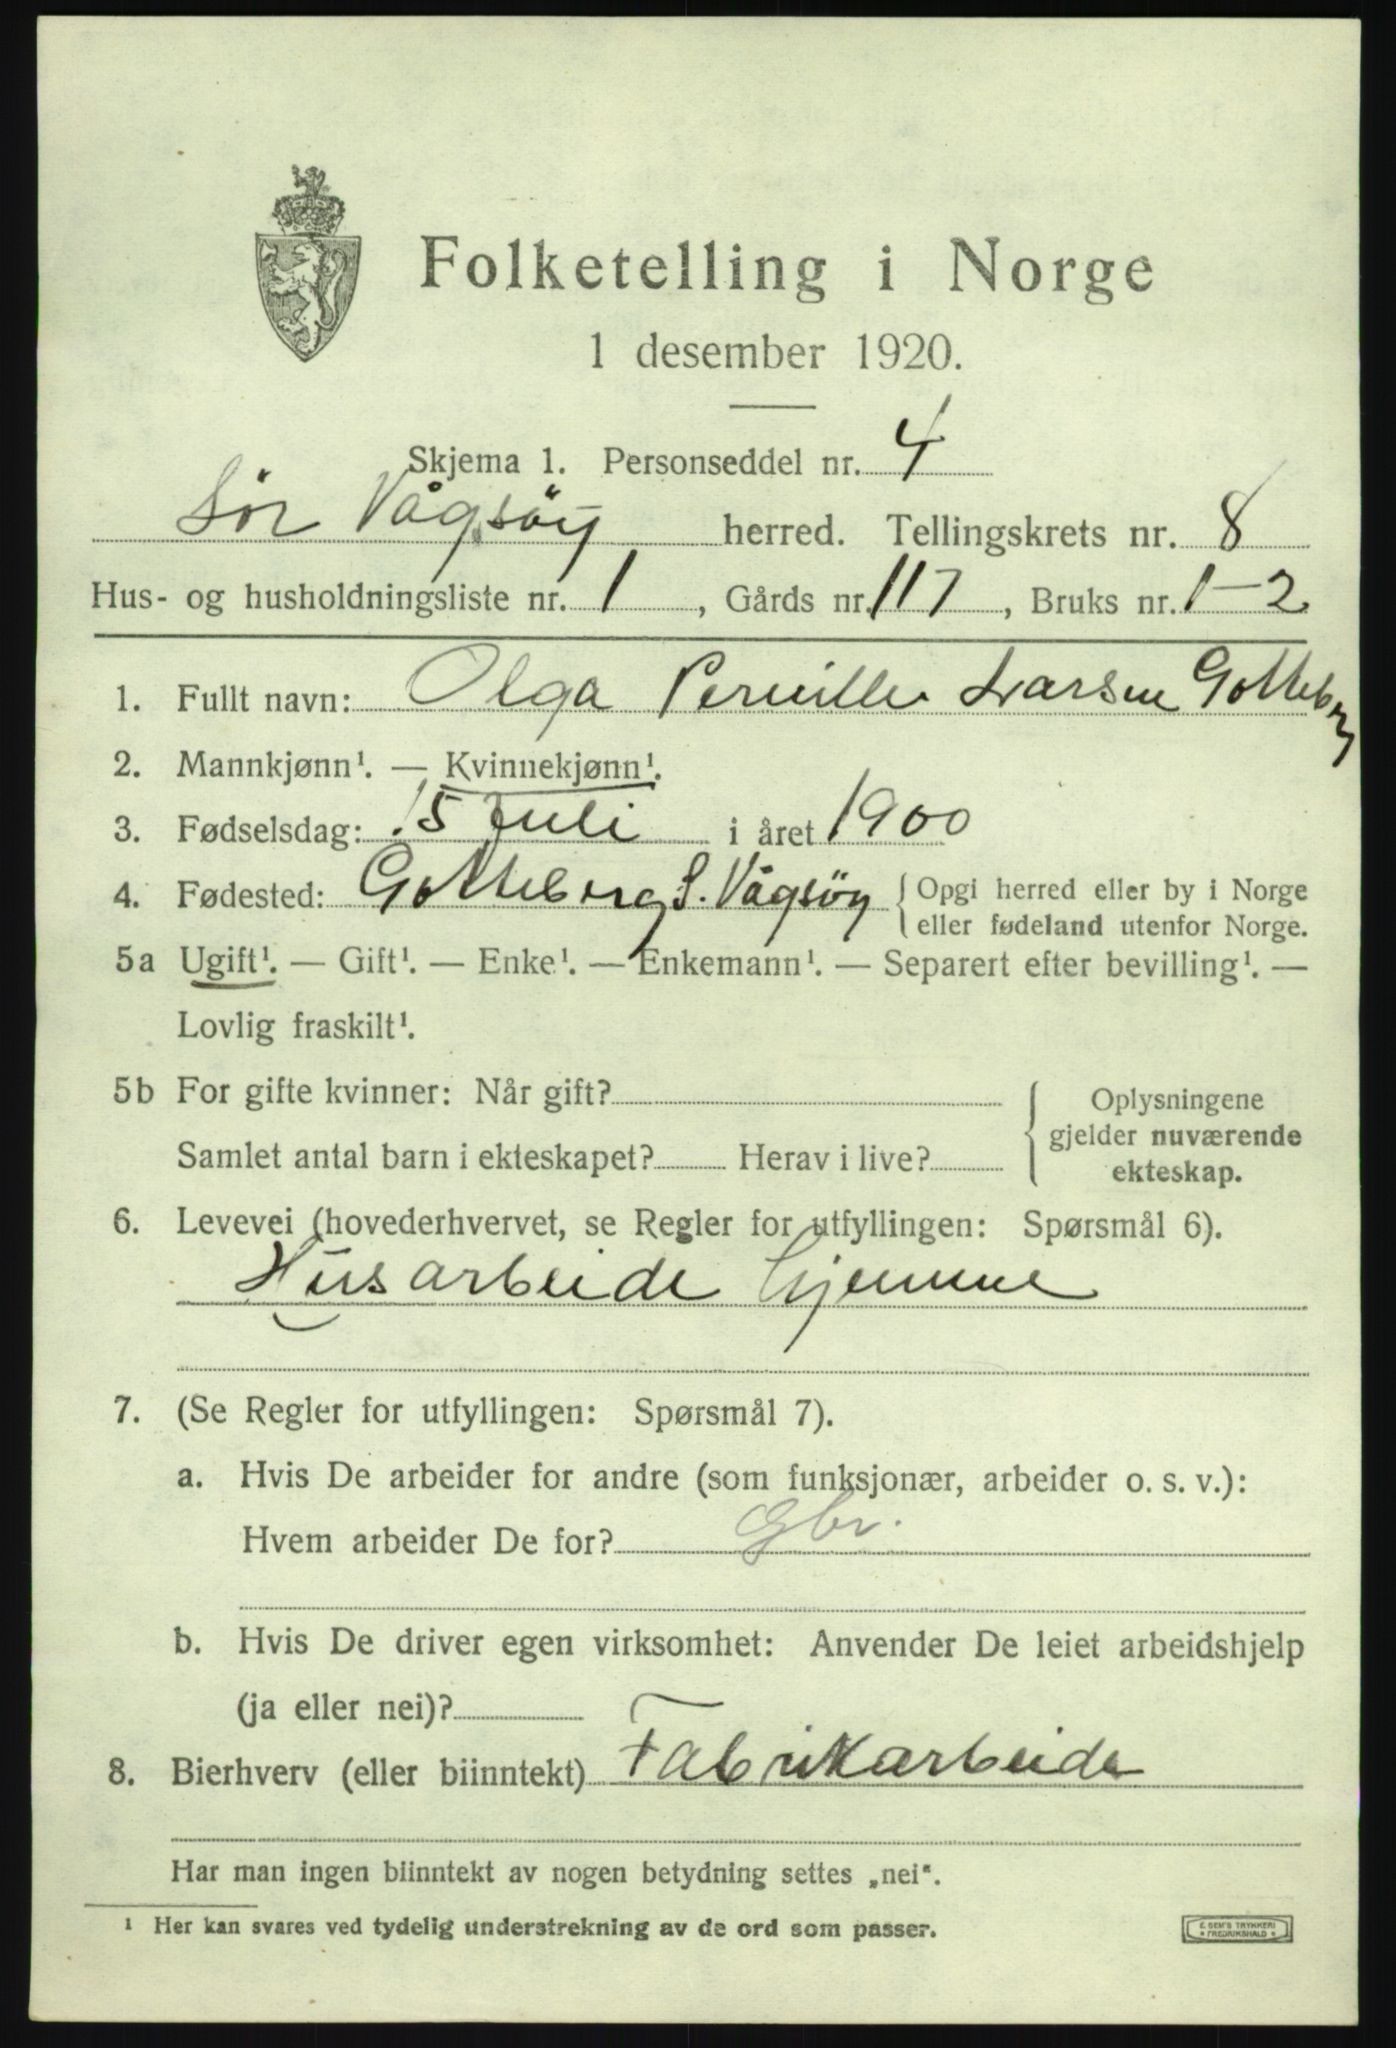 Folketelling i Norge
1 desember 1920.
Skjema 1. Personseddel nr. 4
Sör Vågsöy herred. Tellingskrets nr. 8
Hus- og husholdningsliste nr. 1, Gårds nr. 117, Bruks nr. 1-2
1. Fullt navn: Olga Pernille Larsen Gotteberg
2. Mannkjønn¹. — Kvinnekjønn¹.
3. Fødselsdag: 15 Juli i året 1900
4. Fødested: Gotteberg S. Vågsöy { Opgi herred eller by i Norge
eller fødeland utenfor Norge.
5a Ugift¹. — Gift¹. — Enke¹. — Enkemann¹. — Separert efter bevilling¹. —
Lovlig fraskilt¹.
5b For gifte kvinner: Når gift?
Samlet antal barn i ekteskapet? Herav i live?
Oplysningene
gjelder nuværende
ekteskap.
6. Levevei (hovederhvervet, se Regler for utfyllingen: Spørsmål 6).
Husarbeide hjemme
7. (Se Regler for utfyllingen: Spørsmål 7).
a. Hvis De arbeider for andre (som funksjonær, arbeider o. s. v.):
Hvem arbeider De for? Gbr.
b. Hvis De driver egen virksomhet: Anvender De leiet arbeidshjelp
(ja eller nei)?
8. Bierhverv (eller biinntekt) Fabrikarbeide
Har man ingen biinntekt av nogen betydning settes „nei".
¹ Her kan svares ved tydelig understrekning av de ord som passer.
E. SEM'S TRYKKERI
* FREDRIKSHALD *